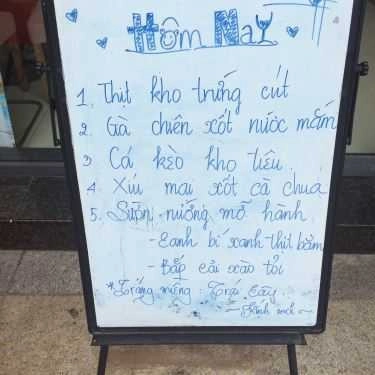 Hôm Nay
1. Thịt kho trứng cút
2. Gà chiên xốt nước mắm
3 Cá kèo kho tiêu.
4 Xíu mai xốt cà chua
5. Sườn nướng mỡ hành
- Canh bí xanh thịt bằm
- Bắp cải xào tỏi
* Tráng miệng : Trái Cây
~ Kính mời ~